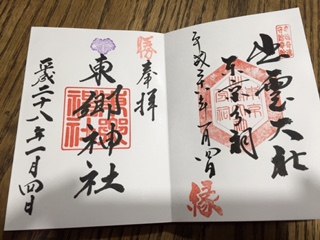 出雲大社
東京分祠
平成二十八年一月四日
縁
勝
奉拝
東郷神社
平成二十八年一月四日